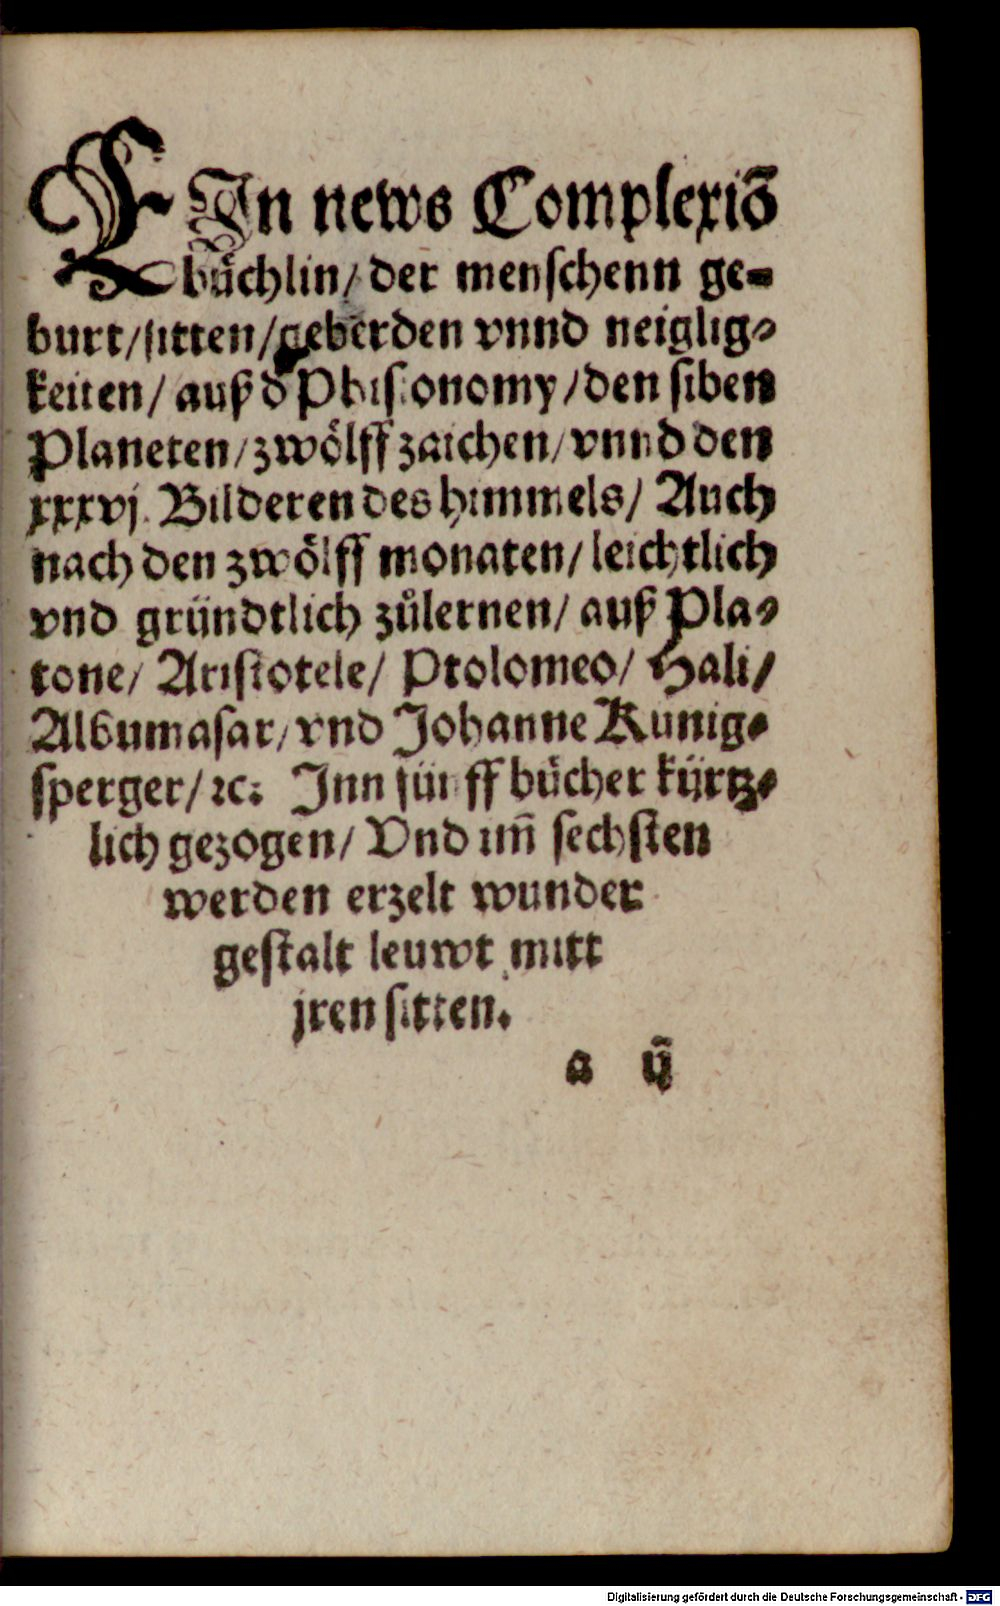 EIn news Complexiõ
buͤchlin / der menschenn ge-
burt / sitten / geberden vnnd neiglig-
keiten / auß d Phisionomy / den siben
Planeten / zwoͤlff zaichen / vnnd den
xxxvj. Bilderen des himmels / Auch
nach den zwoͤlff monaten / leichtlich
vnd gründtlich zuͦlernen / auß Pla-
tone / Aristotele / Ptolomeo / Hali /
Albumasar / vnd Johanne Kunig-
sperger / ꝛc. Jnn fünff buͤcher kürtz-
lich gezogen / Vnd im̄ sechsten
werden erzelt wunder
gestalt leuwt mitt
jren sitten.
a ij
Digitalisierung gefördert durch die Deutsche Forschungsgemeinschaft - DFG